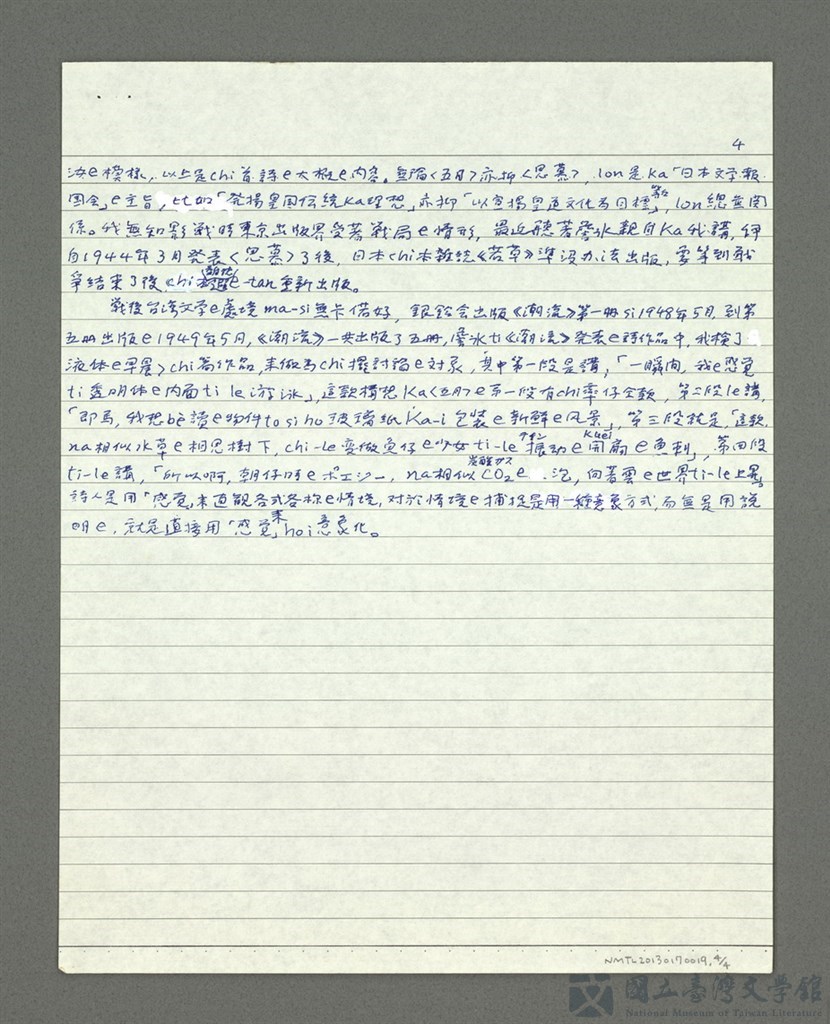 4
汝e模樣,以上是chi首詩e大概e内容。無論〈五月〉亦抑〈思慕〉,lon是ka「日本文学報
国会」e主旨,比如「発揚皇国伝統ka理想」亦抑「以宣揚皇道文化為目標」等等,lon総無関
係。我無知影戦時東京出版界受著戦局e情形,最近聽著 冰親自ka我講,伊
自1944年3月発表〈思慕〉了後,日本chi本雑誌《若草》準没办法出版,要等到戦
爭結束了後,chi e-tan重新出版。
戦後台湾文学e處境ma-si無卡偌好,銀鈴会出版《潮流》第一册si1948年5月,到第
五册出版e1949年5月,《潮流》一共出版了五册, 冰ti《潮流》発表e詩作品中,我檢了
液体e早晨〉chi篇作品,来做為chi擺討論e対象,其中第一段是講,「一瞬间,我e感覚
ti透明体e内面ti le游泳」,這款構想ka〈五月〉e第一段有chi 仔仝款,第二段le講,
「即馬,我想bè讀e物件to si ho玻璃紙ka-i包装e新鮮e風景」,第三段就是,「這款
na相似水草e相思樹下,chi-le変做魚仔e少女ti-le振动e開扇e魚刺」,第四段
kuei
ti-le講,「所以啊,朝仔時eポエジー,na相似CO2e 泡,向著雲e世界ti-le上昇」
炭酸ガス
詩人是用「感覚」来直観各式各様e情境,対於情境e捕捉是用一種意象方式,而無是用説
明e,就是直接用「感覚」来ho i意象化。
NMTL20130170019,4/4
國立臺灣文學館
National Museum of Taiwan Literature